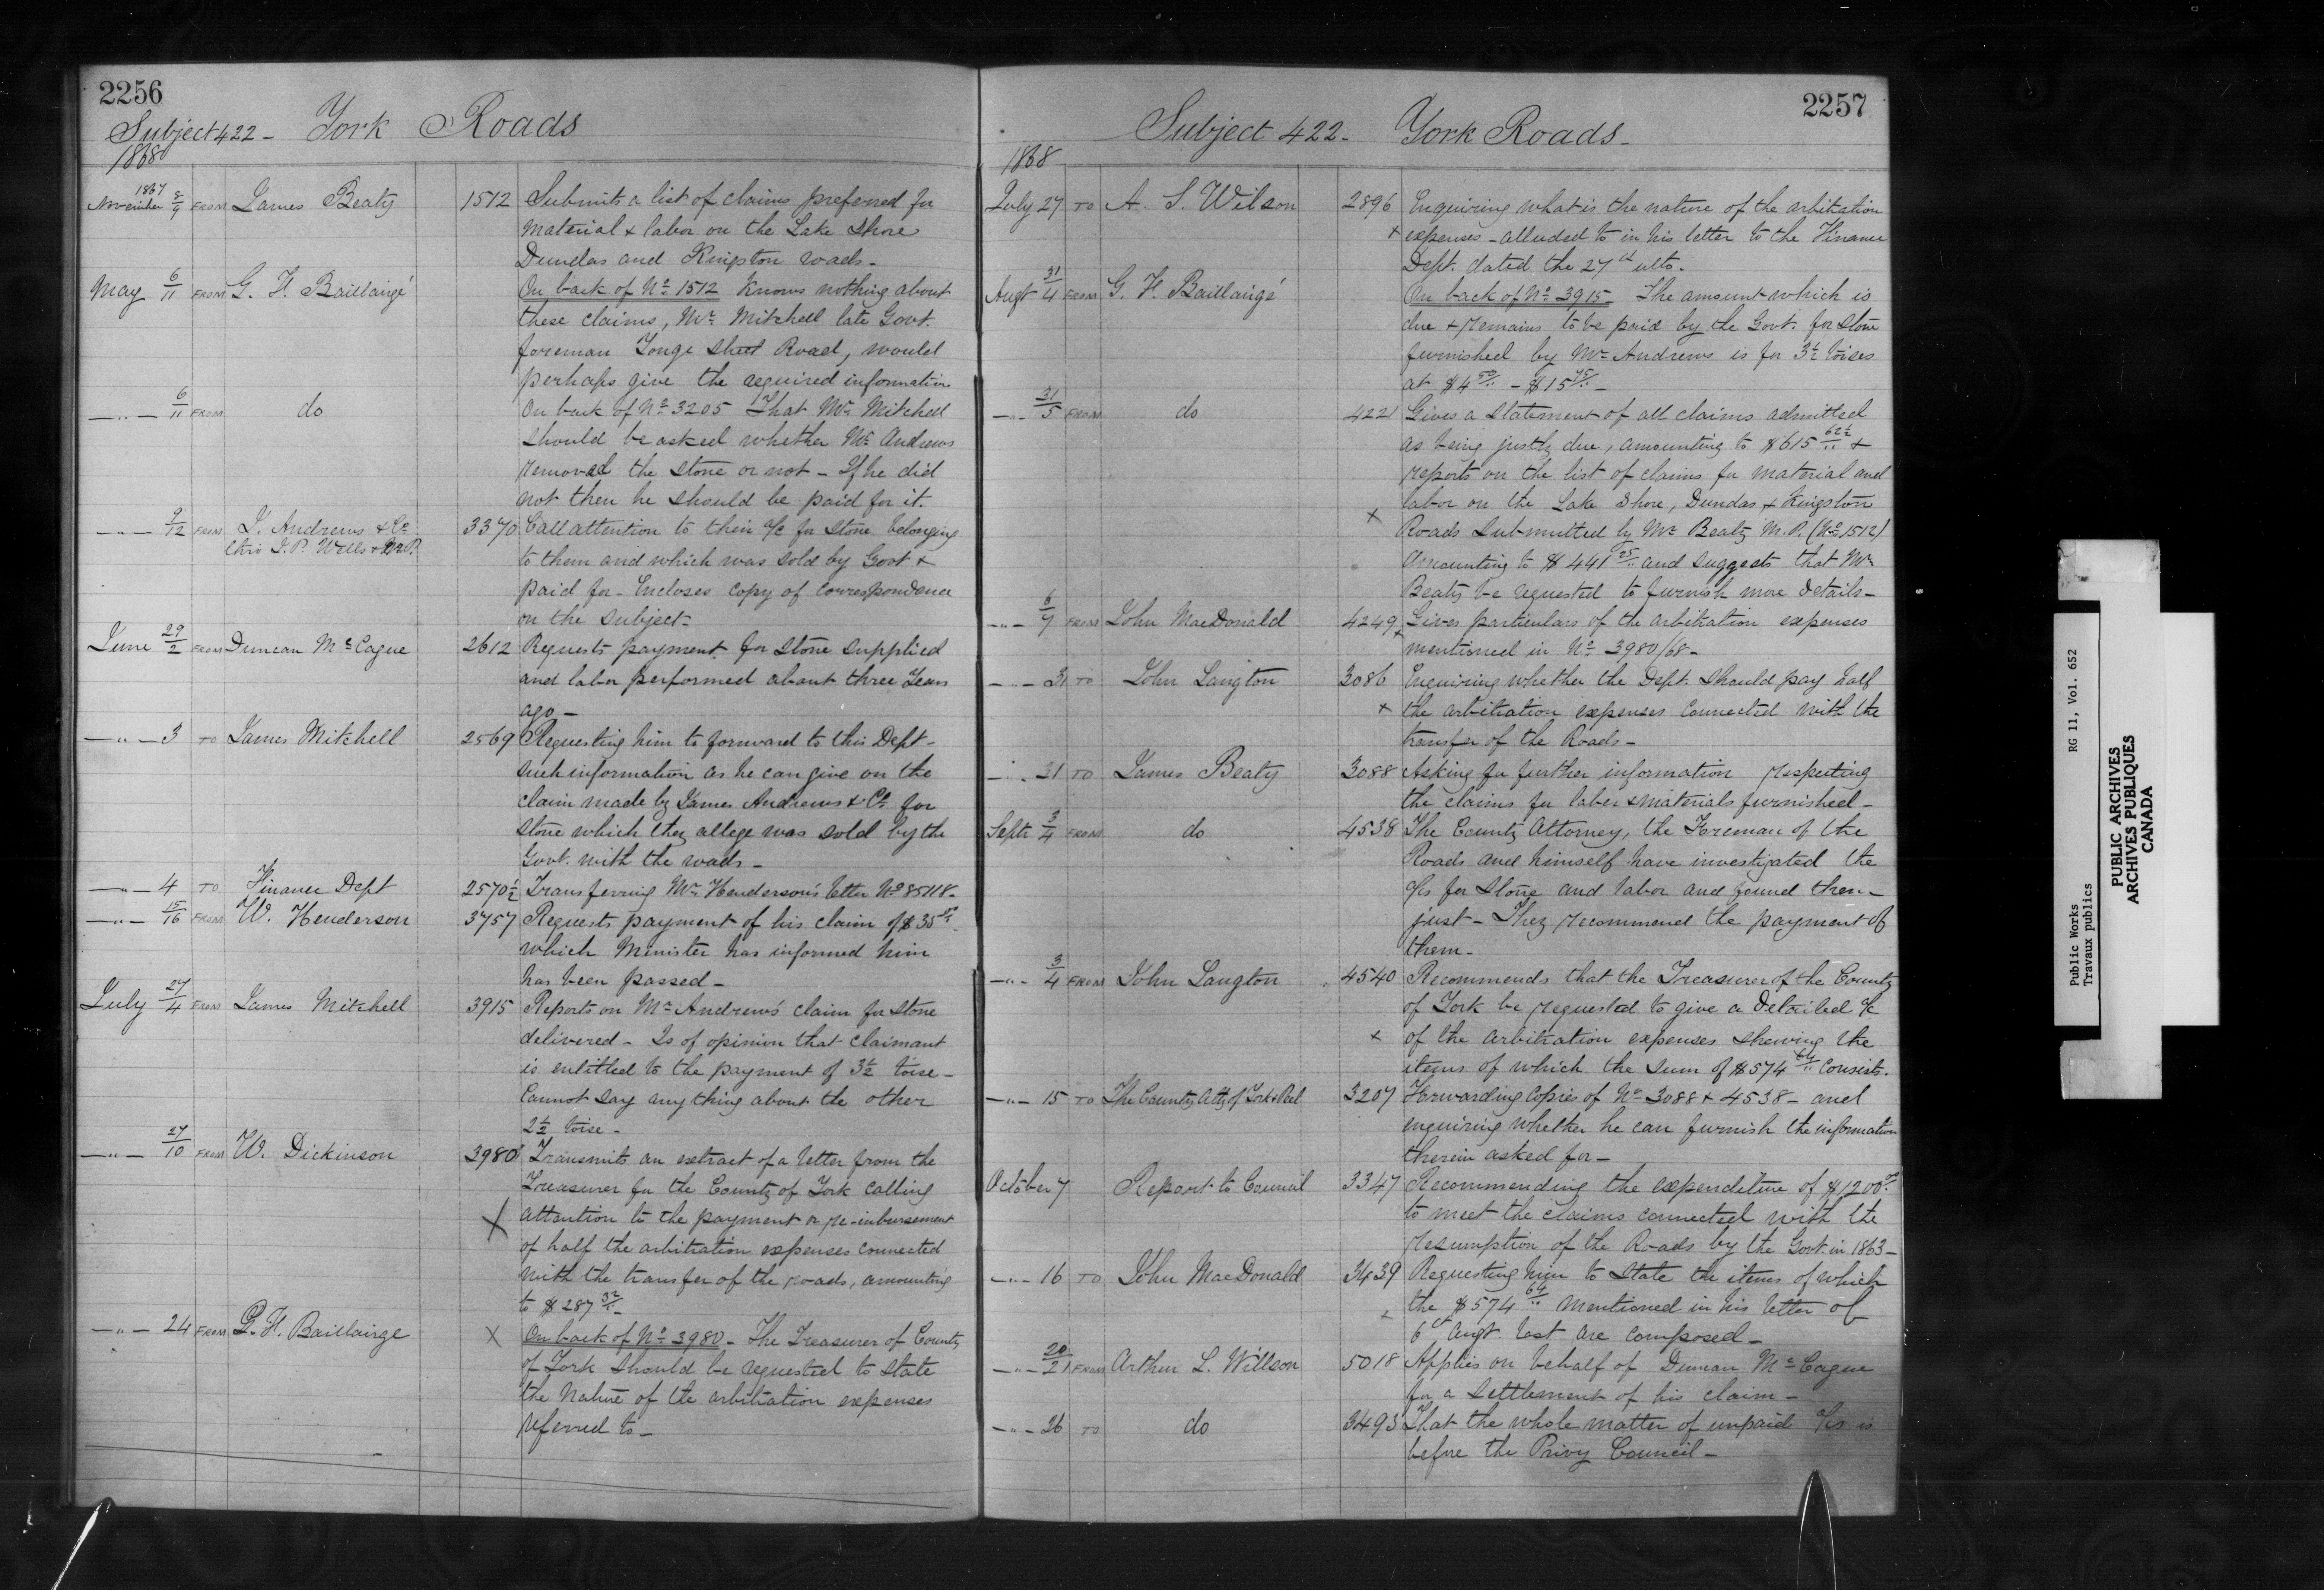 2256
Subject 422 - York Roads
1868
1867
November 8/9 FROM James Beaty 1512 Submits a list of claims preferred for
material & labor on the Lake Shore
Dundas and Kingston roads -
May 6/11 FROM G. F. Baillairgé On back of No 1512 Knows nothing about
these claims, Mr Mitchell late Govt.
foreman Yonge Street Road, would
perhaps give the required information
-"- 6/11 FROM do On back of No 3205 That Mr Mitchell
should be asked whether Mr Andrews
removed the stone or not - If he did
not then he should be paid for it.
-"- 9/12 FROM J. Andrews & Co 3370 Call attention to their a/c for stone belonging
thro J. P. Wells M.P.
to them and which was sold by Govt &
paid for - Encloses copy of correspondence
on the subject -
June 29/2 FROM Duncan McCague 2612 Requests payment for stone supplied
and labor performed about three years
ago -
-"- 3 TO James Mitchell 2569 Requesting him to forward to this Dept -
such information as he can give on the
claim made by James Andrews & Co for
stone which they allege was sold by the
Govt. with the roads -
-"- 4 TO Finance Dept 2570½ Transferring Mr Henderson's letter No 85118 -
-"- 15/16 FROM W. Henderson 3757 Requests payment of his claim of $35
which Minister has informed him
has been passed -
July 27/4 FROM James Mitchell 3915 Reports on Mr Andrews' claim for stone
delivered - Is of opinion that claimant
is entitled to the payment of 3½ toise -
Cannot say anything about the other
2½ toise -
-"- 27/10 FROM W. Dickinson 3980 Transmits an extract of a letter from the
Treasurer for the County of York calling
X attention to the payment or re-inbursement
of half the arbitration expenses connected
with the transfer of the roads, amounting
to $287 32/..
-"- 24 FROM G. F. Baillairge X On back of No 3980 - The Treasurer of County
of York should be requested to state
the nature of the arbitration expenses
referred to -
2257
Subject 422 - York Roads -
1868
July 27 TO A. S. Wilson 2896 Enquiring what is the nature of the arbitration
x expenses - alluded to in his letter to the Finance
Dept. dated the 27th ulto -
Augt 31/4 FROM G. F. Baillairgé On back of No 3915 - The amount which is
due & remains to be paid by the Govt. for stone
furnished by Mr Andrews is for 3½ toises
at $4 50/.. - $15 75/.. -
-"- 31/5 FROM do 4221 Gives a statement of all claims admitted
as being justly due, amounting to $615 62½/.. &
reports on the list of claims for material and
labor on the Lake Shore, Dundas & Kingston
x Roads submitted by Mr Beaty M.P. (No 1512)
amounting to $441 25/.. and suggests that Mr
Beaty be requested to furnish more details -
-"- 6/7 FROM John MacDonald 4249 Gives particulars of the arbitration expenses
x mentioned in No 3980/68 -
-"- 31 TO John Langton 3086 Enquiring whether the Dept. should pay half
x the arbitration expenses connected with the
transfer of the Roads -
-"- 31 TO James Beaty 3088 Asking for further information respecting
the claims for labor & materials furnished -
Septr 3/4 FROM do 4538 The County Attorney, the Foreman of the
Roads and himself have investigated the
a/cs for stone and labor and found them -
just - They recommend the payment of
them -
-"- 3/4 FROM John Langton 4540 Recommends that the Treasurer of the County
of York be requested to give a detailed a/c
x of the arbitration expenses shewing the
items of which the sum of $574 64/.. consists.
-"- 15 TO The County Atty of York & Peel 3207 Forwarding copies of No 3088 & 4538 - and
enquiring whether he can furnish the information
therein asked for -
October 7 Report to Council 3347 Recommending the expenditure of $1200
to meet the claims connected with the
resumption of the Roads by the Govt. in 1863 -
-"- 16 TO John MacDonald 3439 Requesting him to state the items of which
x the $574 64/.. mentioned in his letter of
6th Augt. last are composed -
-"- 20/21 FROM Arthur L. Willson 5018 Applies on behalf of Duncan McCague
for a settlement of his claim -
-"- 26 TO do 3493 That the whole matter of unpaid a/cs is
before the Privy Council -
Public Works RG 11, Vol. 652
Travaux publics
PUBLIC ARCHIVES
ARCHIVES PUBLIQUES
CANADA